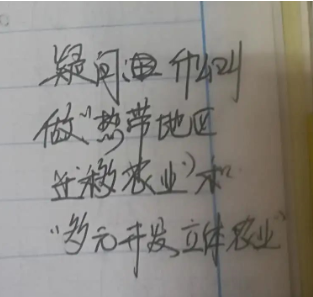 疑问: 什么叫
做“热带地区
迁移农业”和
“多元开发立体农业”